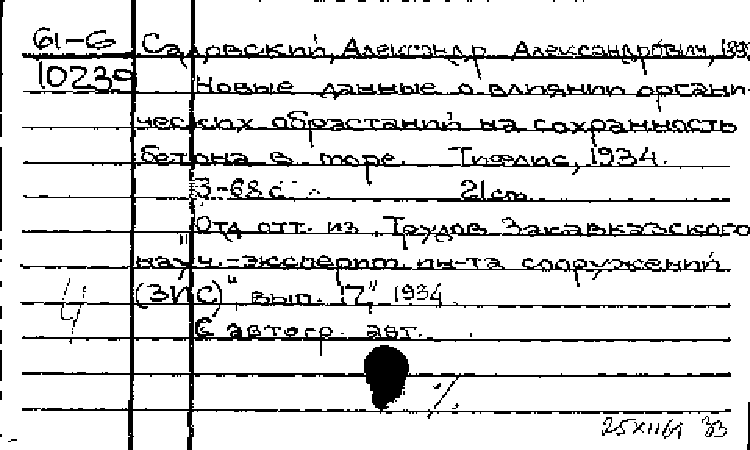 61-6 Садовский, Александр Александрович,
10239 Новые данные о влиянии органи-
ческих обрастаний на сохранность
бетона в море. Тифлис, 1934.
3-68 с. 21 cm.
Отд. отт. из "Трудов Закавказского
науч.-эксперим. ин-та сооружений
(ЗИС)" вып. 17, 1934.
С автогр. авт.
4
25 XII 64